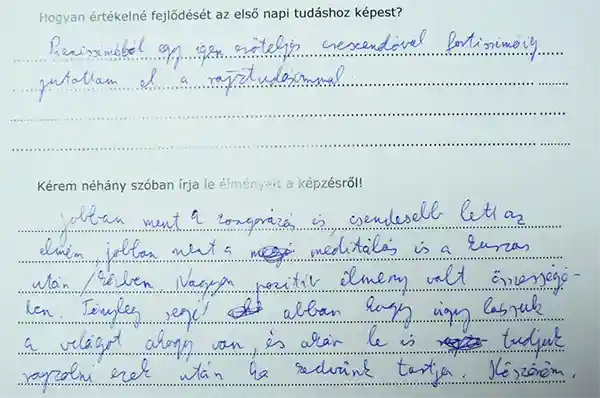 Hogyan értékelné fejlődését az első napi tudáshoz képest?
Pianissimóból egy igen erőteljes crescendóval fortissimóig
jutottam el a rajztudásommal
Kérem néhány szóban írja le élményeit a képzésről!
jobban ment a zongorázás is, csendesebb lett az
elmém, jobban ment a meditálás is a kurzus
után / közben. Nagyon pozitív élmény volt összességé-
ben. Tényleg segít abban hogy úgy lássuk
a világot ahogy van, és akár le is tudjuk
rajzolni ezek után ha kedvünk tartja. Köszönöm.